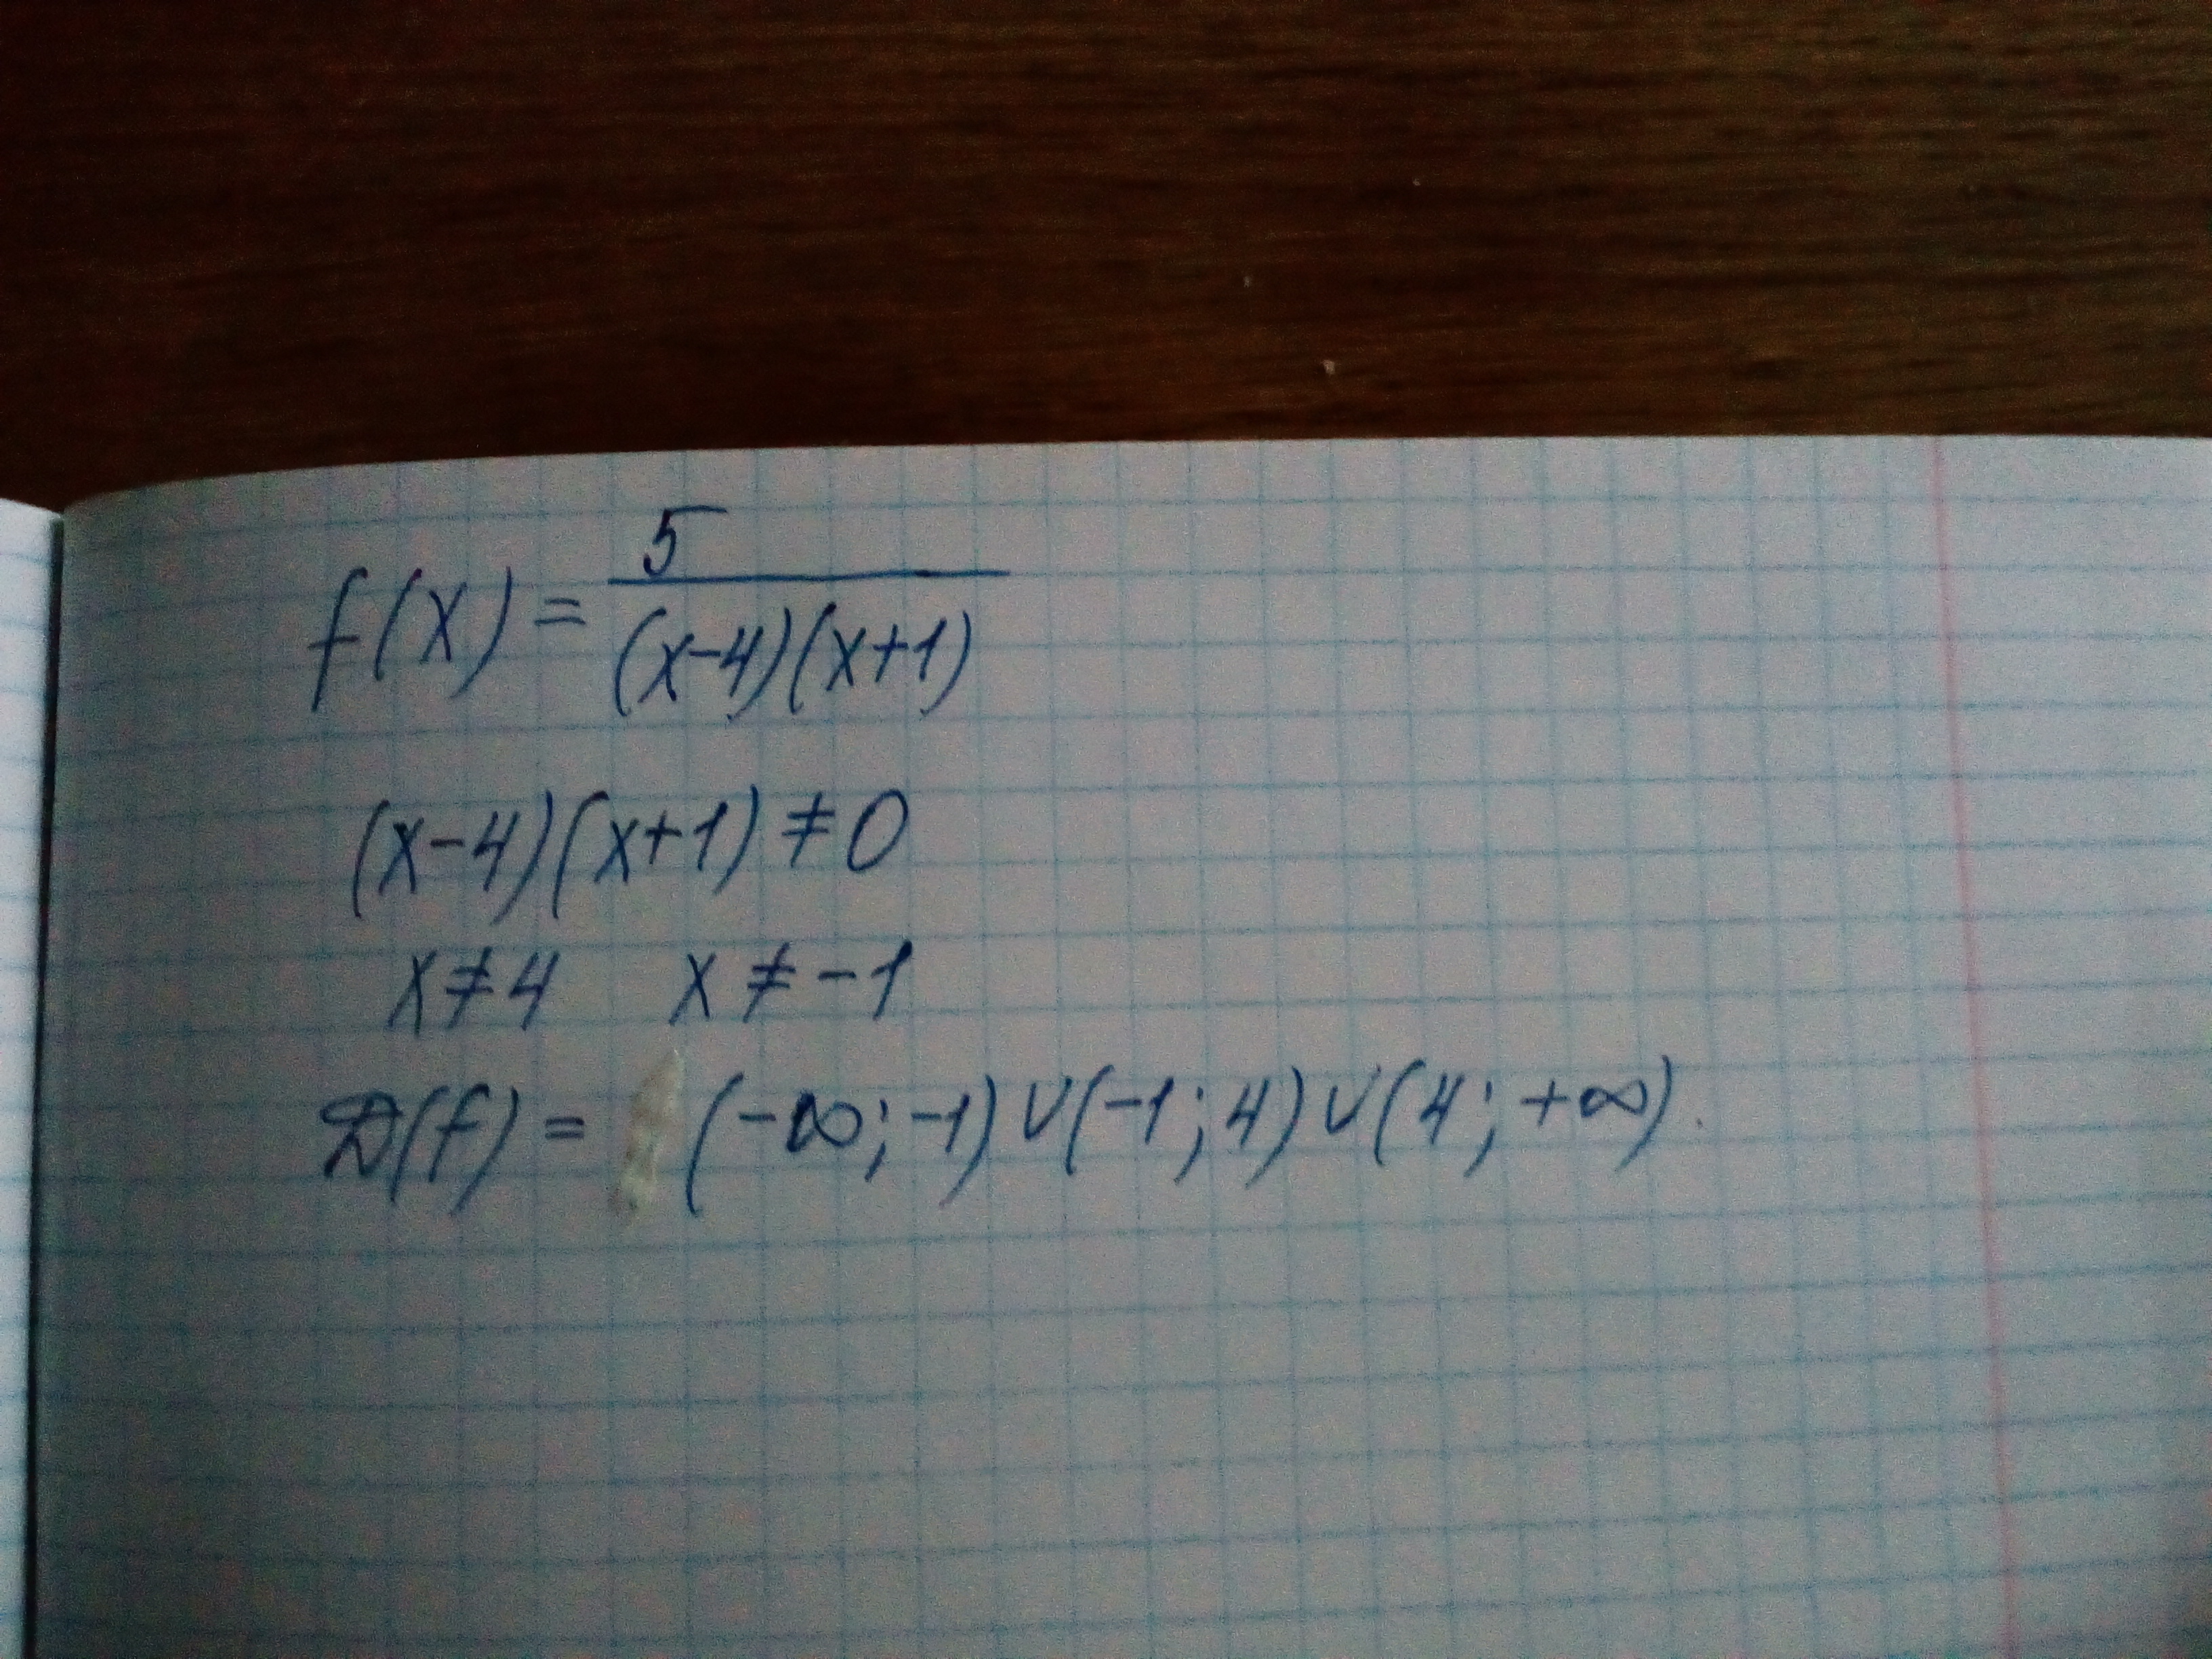 f(x) = 5/((x-4)(x+1))
(x-4)(x+1) ≠ 0
x ≠ 4 x ≠ -1
D(f) = (-∞; -1) ∪ (-1; 4) ∪ (4; +∞).